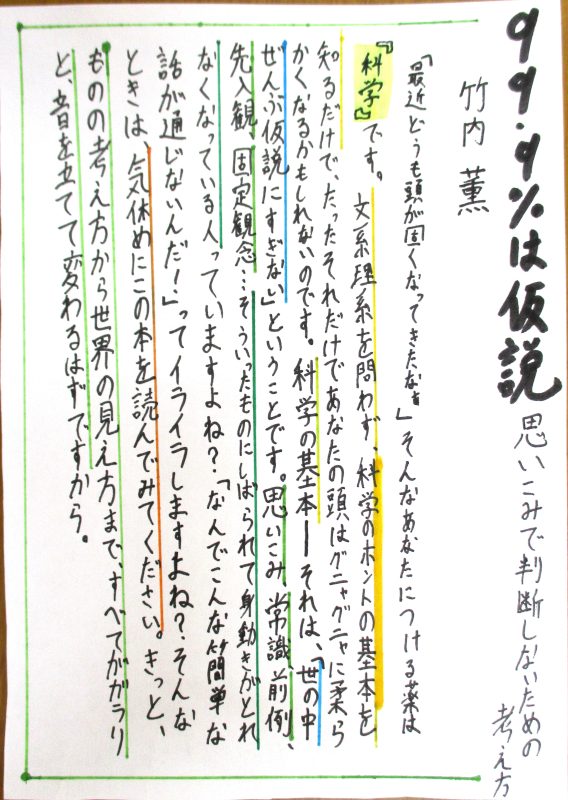 99.9%は仮説
思いこみで判断しないための
考え方
竹内 薫
「最近どうも頭が固くなってきたなぁ」そんなあなたにつける薬は
『科学』です。文系理系を問わず、科学のホントの基本を
知るだけで、たったそれだけであなたの頭はグニャグニャに柔ら
かくなるかもしれないのです。科学の基本―それは、「世の中
ぜんぶ仮説にすぎない」ということです。思いこみ、常識、前例、
先入観、固定観念…そういったものにしばられて身動きがとれ
なくなっている人っていますよね?「なんでこんな簡単な
話が通じないんだ!」ってイライラしますよね?そんな
ときは、気休めにこの本を読んでみてください。きっと、
ものの考え方から世界の見え方まで、すべてがガラリ
と、音を立てて変わるはずですから。